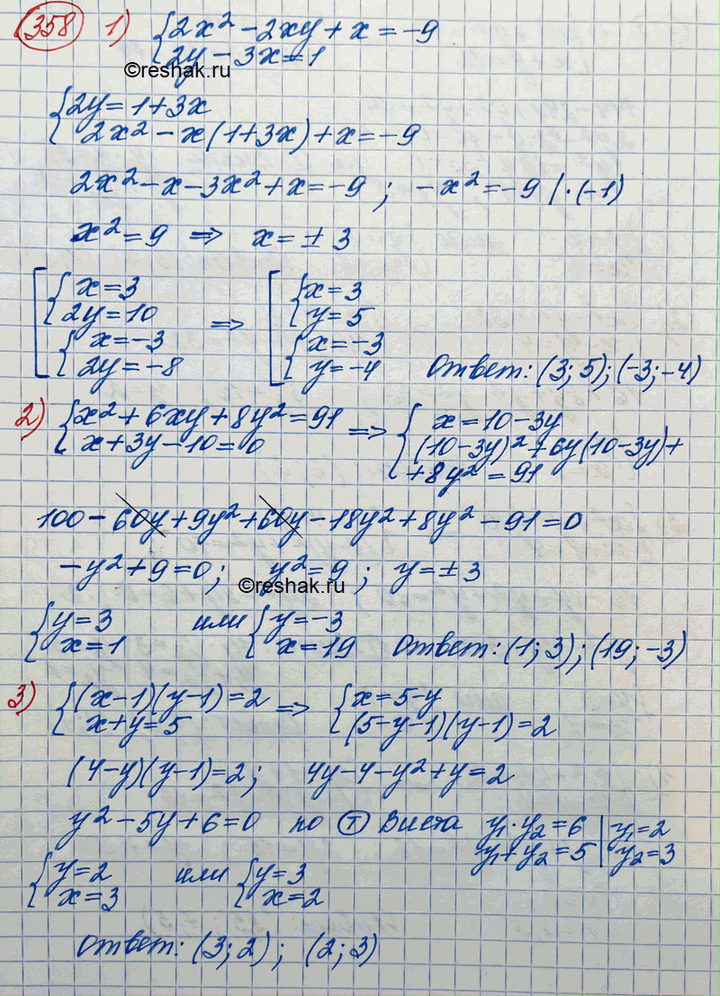 358 1) {2x² - 2xy + x = -9
{2y - 3x = 1
©reshak.ru
{2y = 1 + 3x
{2x² - x(1+3x) + x = -9
2x² - x - 3x² + x = -9 ; -x² = -9 |·(-1)
x² = 9 ⇒ x = ± 3
[{x = 3
{2y = 10
{x = -3
{2y = -8
⇒
[{x = 3
{y = 5
{x = -3
{y = -4
Ответ: (3; 5); (-3; -4)
2) {x² + 6xy + 8y² = 91
{x + 3y - 10 = 0
⇒ {x = 10 - 3y
{(10-3y)² + 6y(10-3y) +
+ 8y² = 91
100 - 60y + 9y² + 60y - 18y² + 8y² - 91 = 0
-y² + 9 = 0; y² = 9; y = ± 3
©reshak.ru
{y = 3
{x = 1
или {y = -3
{x = 19
Ответ: (1; 3); (19; -3)
3) {(x-1)(y-1) = 2
{x + y = 5
⇒ {x = 5 - y
{(5-y-1)(y-1) = 2
(4-y)(y-1) = 2; 4y - 4 - y² + y = 2
y² - 5y + 6 = 0 по Ⓣ Виета y₁·y₂ = 6 | y₁ = 2
y₁ + y₂ = 5 | y₂ = 3
{y = 2
{x = 3
или {y = 3
{x = 2
Ответ: (3; 2); (2; 3)